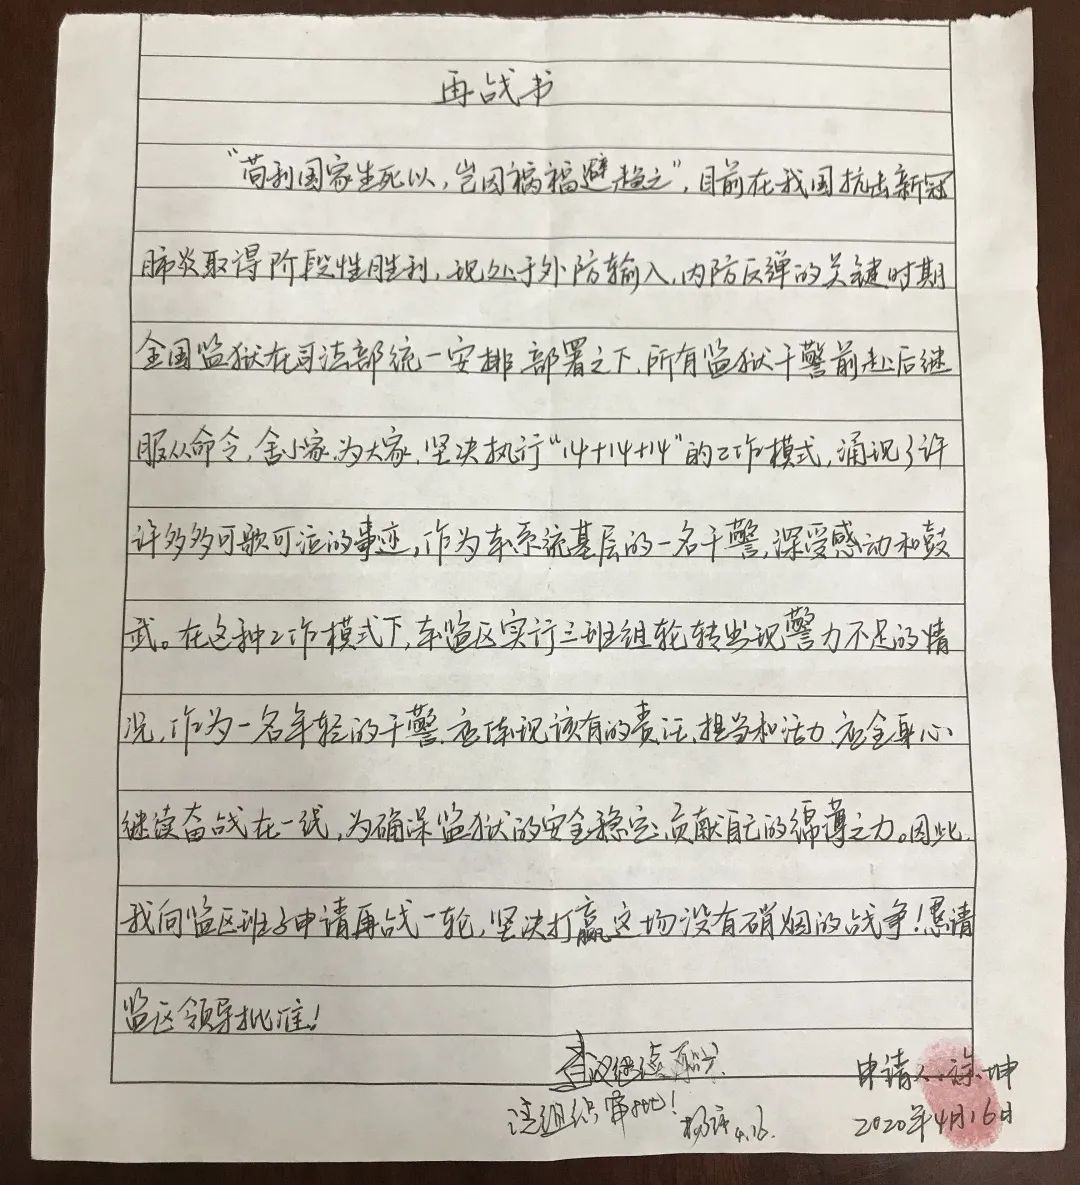 再战书
“苟利国家生死以，岂因祸福避趋之”，目前在我国抗击新冠
肺炎取得阶段性胜利，现处于外防输入，内防反弹的关键时期
全国监狱在司法部统一安排、部署之下，所有监狱干警前赴后继
服从命令，舍小家，为大家，坚决执行“14+14+14”的工作模式，涌现了许
许多多可歌可泣的事迹，作为本系统基层的一名干警，深受感动和鼓
武。在这种工作模式下，本监区实行三班组轮转出现警力不足的情
况，作为一名年轻的干警，应体现该有的责任、担当和活力，应全身心
继续奋战在一线，为确保监狱的安全稳定，贡献自己的绵薄之力。因此，
我向监区班子申请再战一轮，坚决打赢这场没有硝烟的战争！恳请
监区领导批准！
建议继续
请组织审批！
4.16.
申请人：徐坤
2020年4月16日